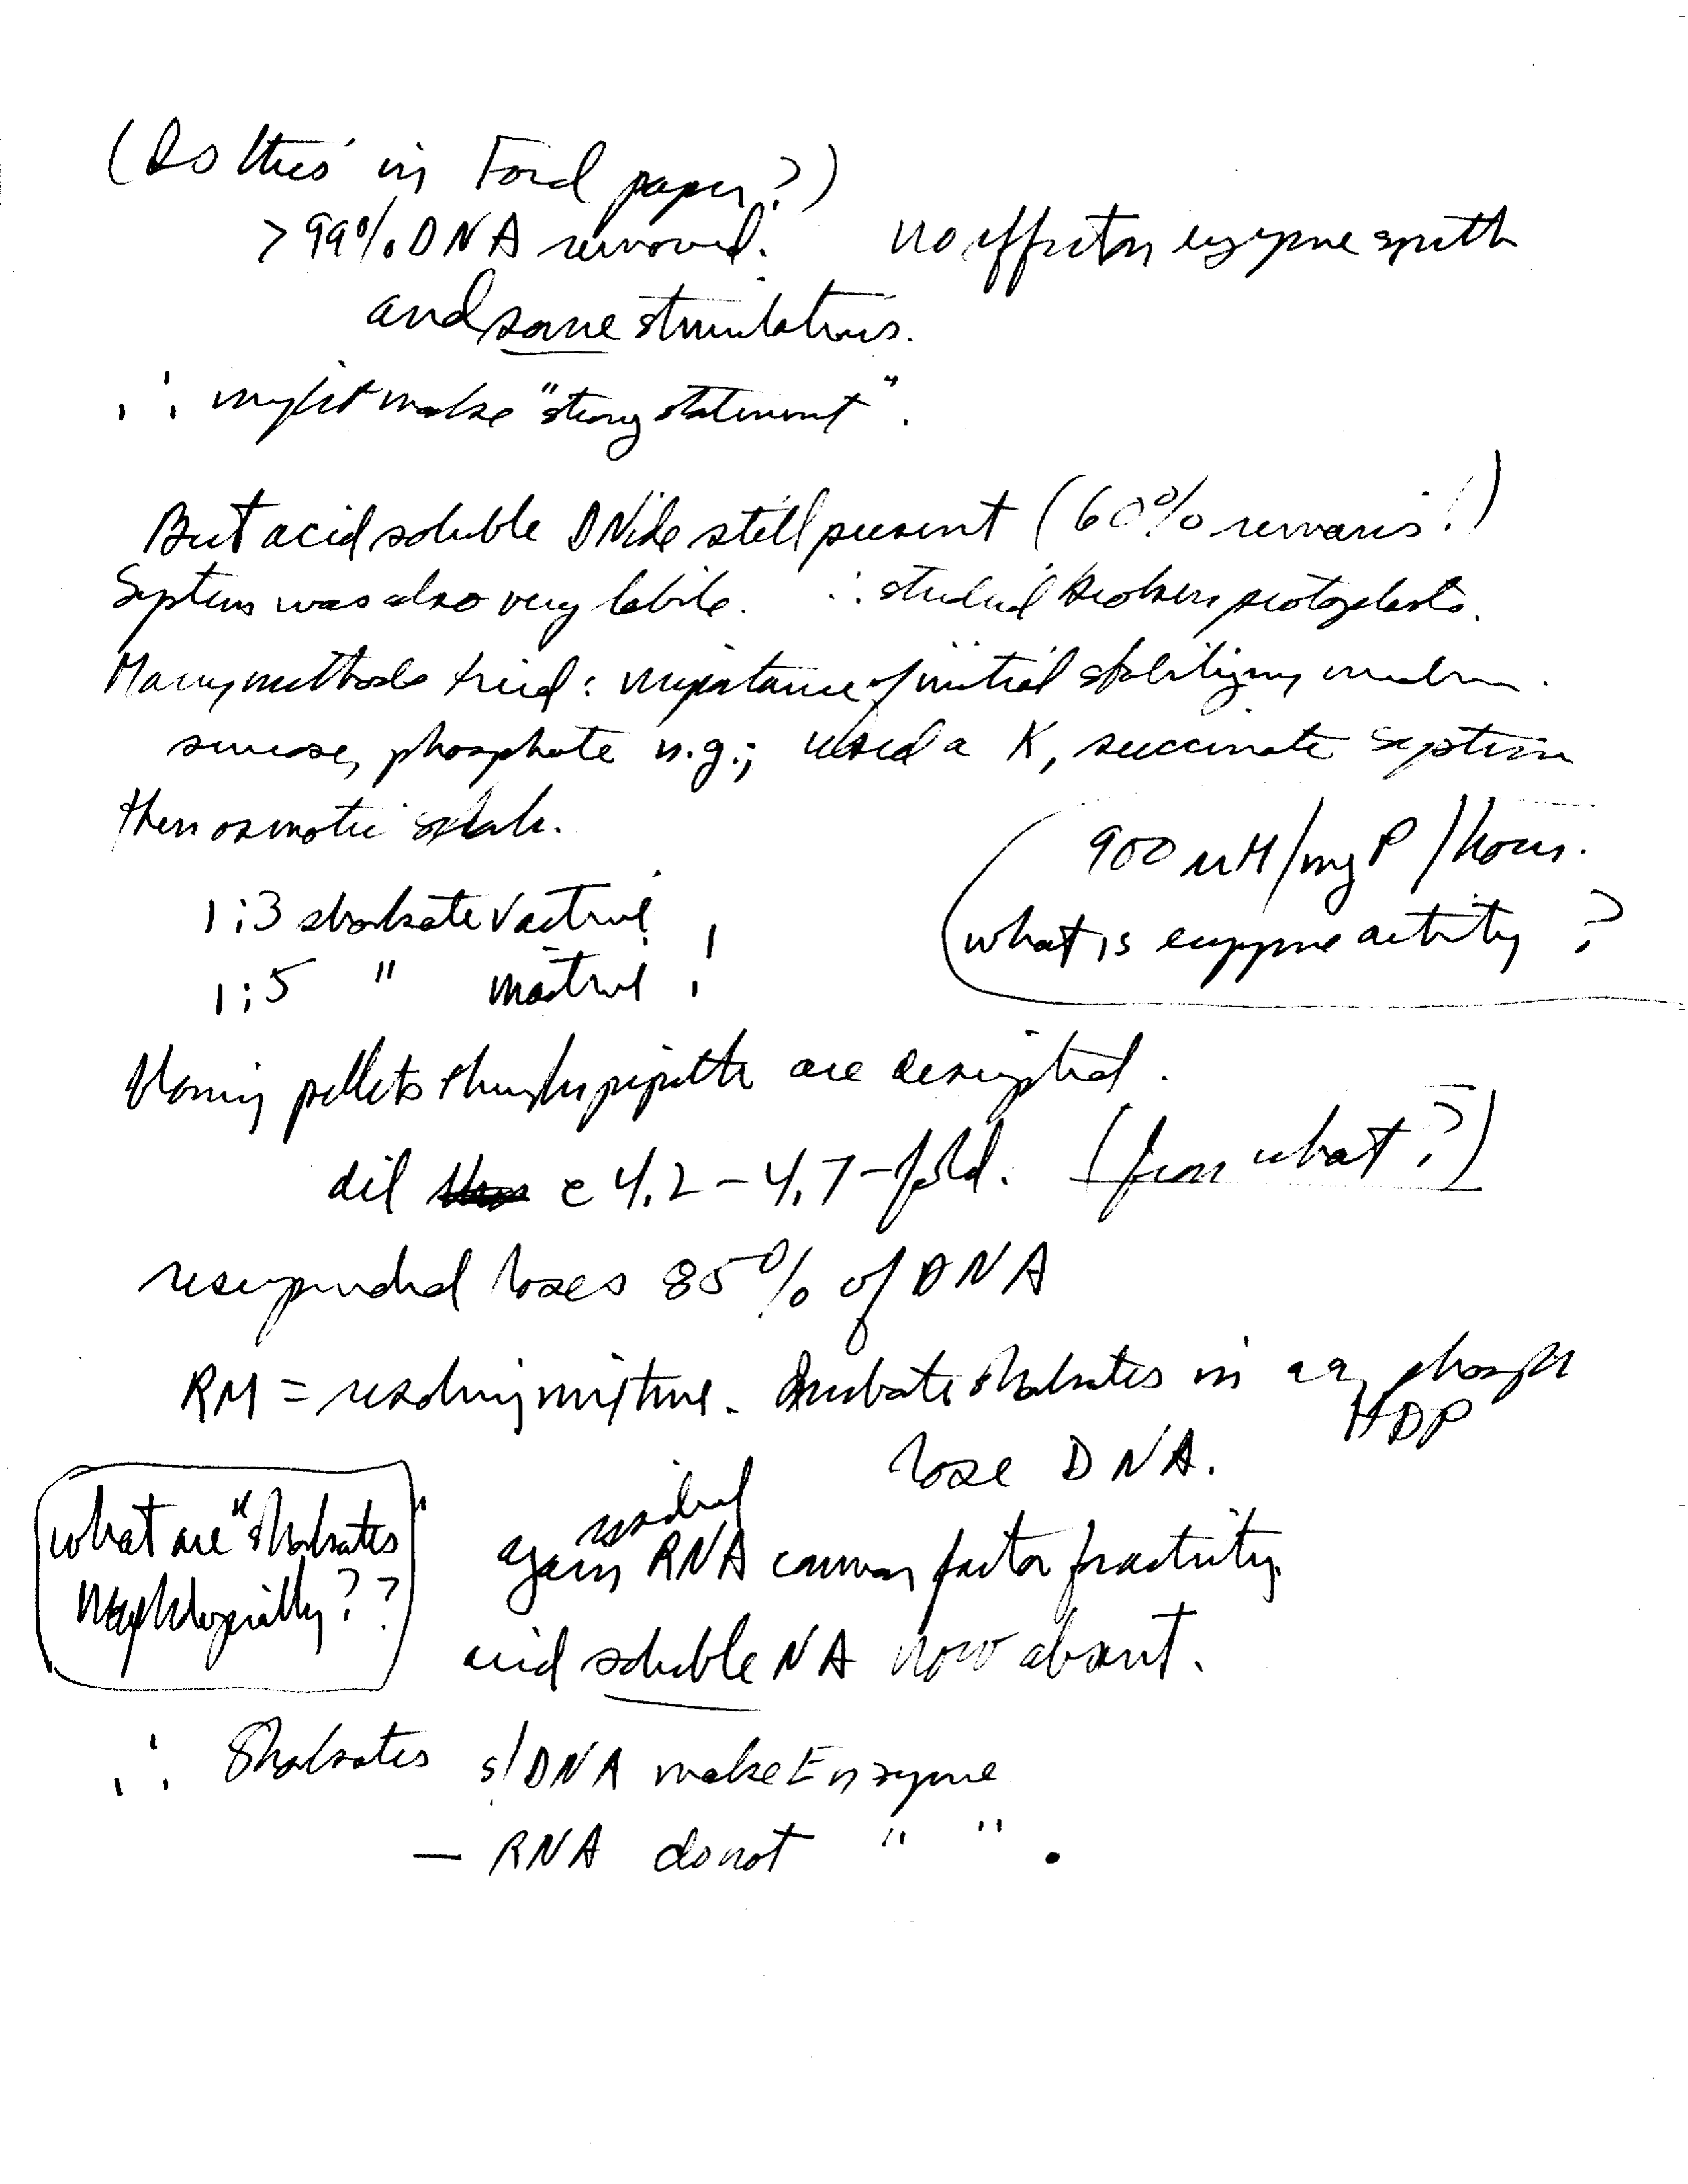 (Is this in Ford paper?)
>99% DNA removed. no effect on enzyme synth
and same stimulations.
∴ might make "strong statement".
But acid soluble DNide still present (60% remains!)
System was also very labile. ∴ studied broken protoplasts.
Many methods tried: importance of initial stabilizing medium.
sucrose, phosphate n.g.; used a K, succinate system
then osmotic shock.
900 uM/mg P/hour.
1:3 shocksate √ active
what is enzyme activity?
1:5 " inactive!
Homog pellets through pipette are disrupted.
dil c 4.2-4.7-fold. (from what?)
resuspended loses 85% of DNA
RM = resolving mixture. Incubate shocksates in phosph
HDP
lose DNA.
what are "shocksates"
morphologically??
residual
again RNA common factor for activity.
acid soluble NA now absent.
∴ Shocksates s/ DNA make Enzyme
— RNA do not " " .